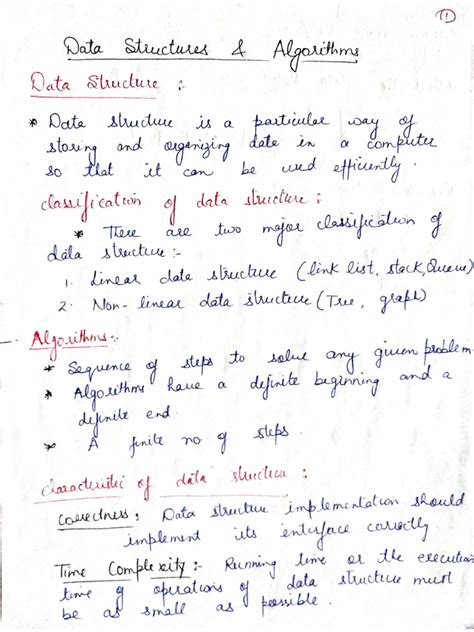 1
Data Structures & Algorithms
Data Structure :-
* Data structure is a particular way of
storing and organizing data in a computer
so that it can be used efficiently.
classification of data structure :
* There are two major classification of
data structure :-
1. Linear data structure (link list, stack, Queue)
2. Non-linear data structure (Tree, graph)
Algorithms :-
* Sequence of steps to solve any given problem
* Algorithms have a definite beginning and a
definite end.
* A finite no of steps.
characteristic of data structure :
Correctness : Data structure implementation should
implement its interface correctly.
Time Complexity :- Running time or the execution
time of operations of data structure must
be as small as possible.